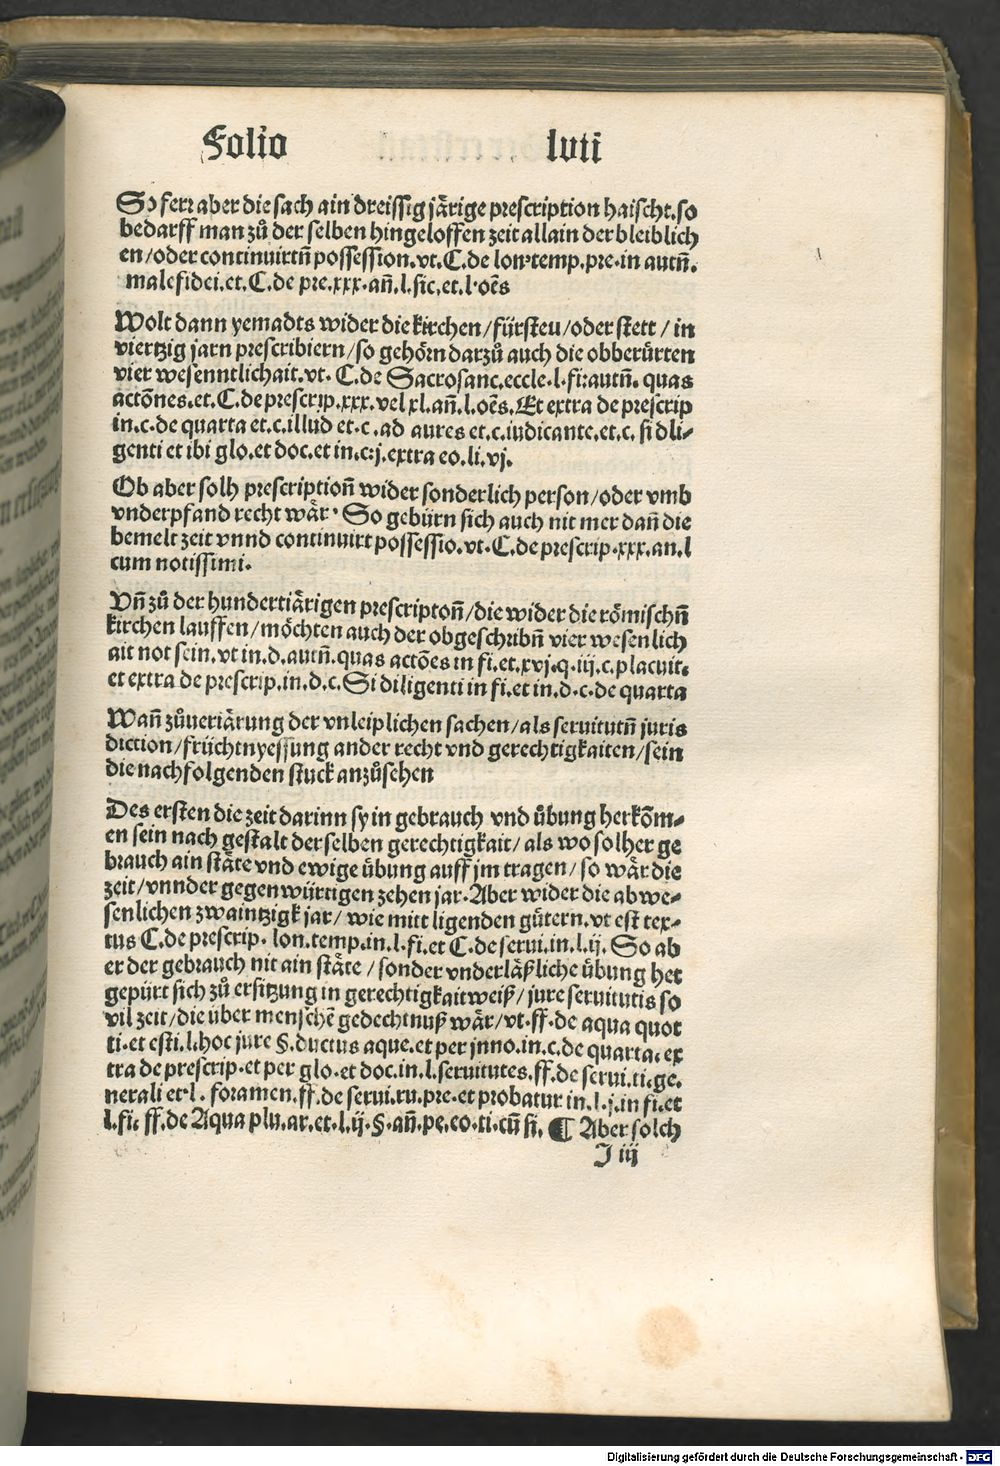 Folio lvti
So ferr aber die sach ain dreissig järige prescription haischt.so
bedarff man zů der selben hingeloffen zeit allain der bleiblich
en/oder continuirtñ possession.vt.C.de lon·temp.pre·in autñ.
malefidei.et.C.de pre.xxx·añ.l.sic.et.l·oẽs
Wolt dann yemadts wider die kirchen/fürsteu/oder stett/in
viertzig jarn prescribiern/so gehörn darzů auch die obberürten
vier wesenntlichait.vt. C.de Sacrosanc.eccle.l.fi:autñ. quas
actõnes.et.C.de prescrip.xxx.vel xl.añ.l.oẽs.Et extra de prescrip
in.c.de quarta et.c.illud et.c.ad aures et.c.iudicante.et.c. si dli-
genti et ibi glo.et doc.et in.c:j.extra eo.li.vj.
Ob aber solh prescriptioñ wider sonderlich person/oder vmb
vnderpfand recht wär· So gebürn sich auch nit mer dañ die
bemelt zeit vnnd continuirt possessio.vt.C.de prescrip.xxx.an.l
cum notissimi.
Vñ zů der hundertiärigen prescriptoñ/die wider die römischñ
kirchen lauffen/möchten auch der obgeschribñ vier wesenlich
ait not sein.vt in.d.autñ.quas actões in fi.et.xvj.q.iij.c.placuit.
et extra de prescrip.in.d.c.Si diligenti in fi.et in.d.c.de quarta
Wañ zůueriärung der vnleiplichen sachen/als seruitutñ juris
diction/früchtnyessung ander recht vnd gerechtigkaiten/sein
die nachfolgenden stuck anzůsehen
Des ersten die zeit darinn sy in gebrauch vnd übung herkõm-
en sein nach gestalt der selben gerechtigkait/als wo solher ge
brauch ain stäte vnd ewige übung auff jm tragen/so wär die
zeit/vnnder gegenwürtigen zehen jar.Aber wider die abwe-
senlichen zwaintzigk jar/wie mitt ligenden gütern.vt est tex-
tus C.de prescrip. lon.temp.in.l.fi.et C.de serui.in.l.ij. So ab
er der gebrauch nit ain stäte/sonder vnderläßliche übung het
gepürt sich zů ersitzung in gerechtigkaitweiß/jure seruitutis so
vil zeit/die über menschẽ gedechtnuß wär/vt.ff.de aqua quot
ti.et esti.l.hoc jure §.ductus aque.et per jnno.in.c.de quarta.ex
tra de prescrip.et per glo.et doc.in.l.seruitutes.ff.de serui.ti.ge.
nerali et.l. foramen.ff.de serui.ru.pre.et probatur in.l.j.in fi.et
l.fi. ff.de Aqua plu.ar.et.l.ij.§.añ.pe.eo.ti.cũ si. ¶ Aber solch
J iij
Digitalisierung gefördert durch die Deutsche Forschungsgemeinschaft - DFG